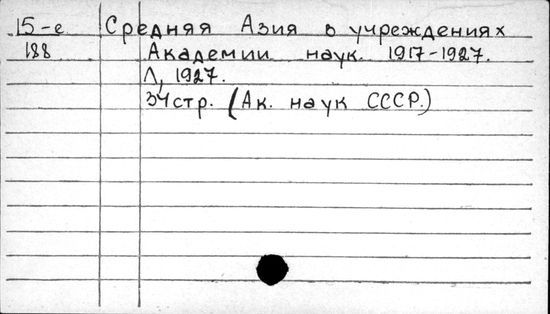 15-е Средняя Азия в учреждениях
188 Академии наук. 1917-1927.
Л, 1927.
34 стр. (Ак. наук СССР.)